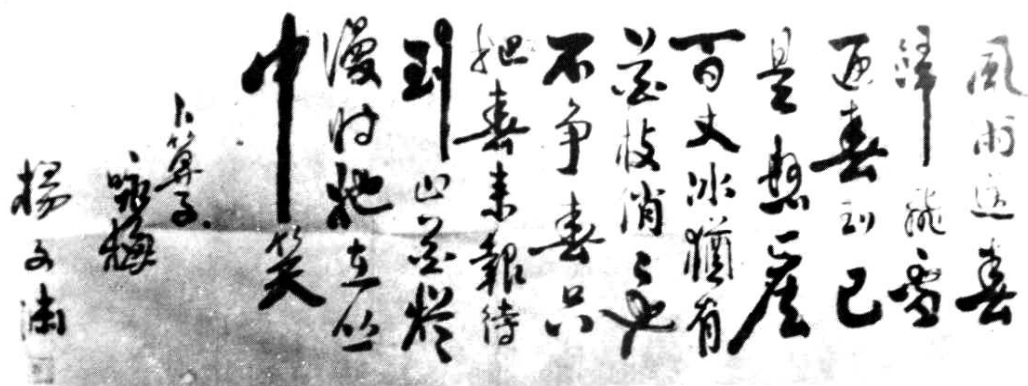 風雨送春
歸飛雪
迎春到已
是懸崖
百丈冰猶有
花枝俏〻也
不争春只
把春来報待
到山花烂
漫时她在丛
中笑
卜算子
咏梅
楊文